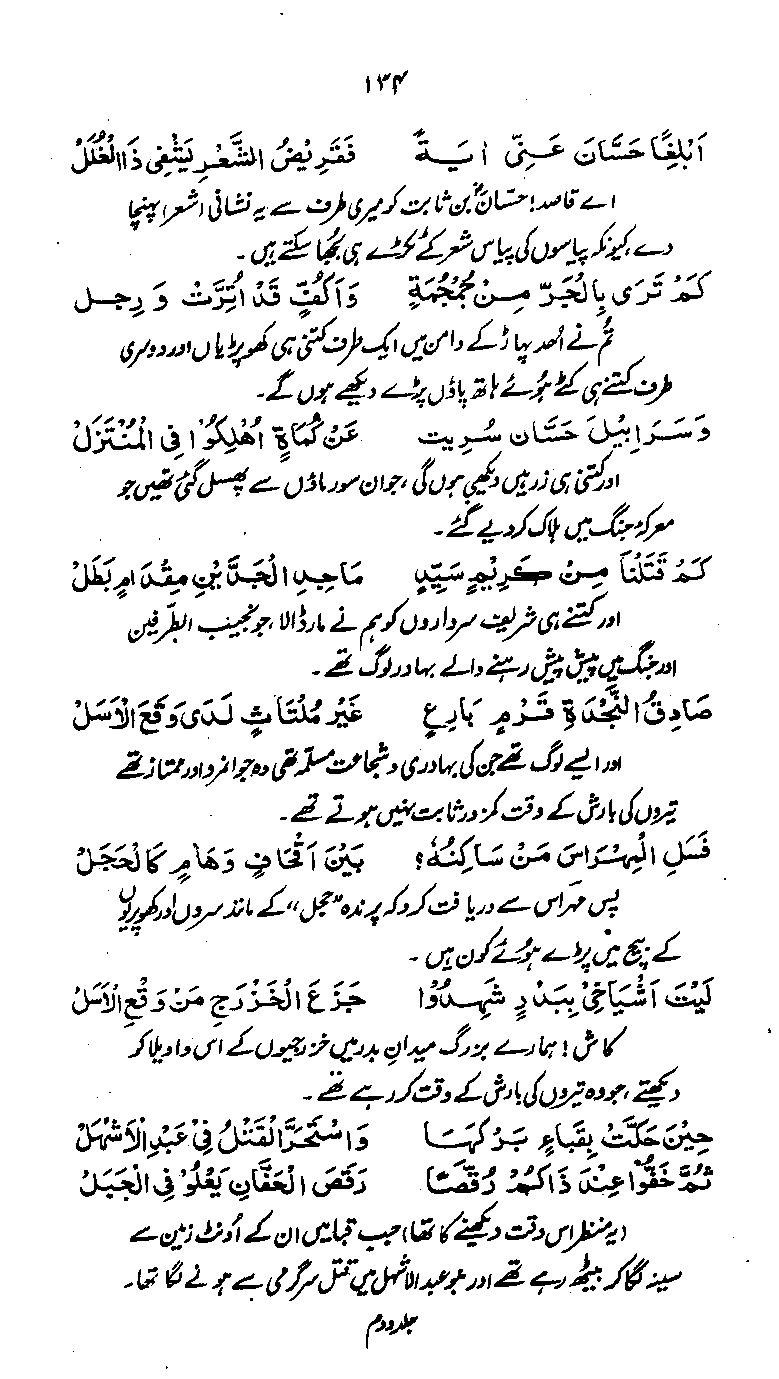 ۱۳۴
اَبْلِغًا حَسَّانَ عَنِّى اٰيَةً فَقَرِيْضُ الشَّعْرِ يَشْفِى ذَا الْغُلَلْ
اے قاصد! حسانؓ بن ثابت کو میری طرف سے یہ نشانی (شعر) پہنچا
دے، کیونکہ پیاسوں کی پیاس شعر کے ٹکڑے ہی بجھا سکتے ہیں ۔
كَمْ تَرٰى بِالْجَرِّ مِنْ جُمْجُمَةٍ وَاَكُفٍّ قَدْ اُتِرَّتْ وَ رِجِل
تُم نے اُحد پہاڑ کے دامن میں ایک طرف کتنی ہی کھوپڑیاں اور دوسری
طرف کتنے ہی کٹے ہوئے ہاتھ پاؤں پڑے دیکھے ہوں گے۔
وَسَرَابِيْلَ حَسَّان سُرِيت عَنْ كُمَاةٍ اُهْلِكُوْا فِى الْمُنْتَزَلْ
اور کتنی ہی زرہیں دیکھی ہوں گی، جو ان سورماؤں سے پھسل گئی تھیں جو
معرکۂ جنگ میں ہلاک کر دیے گئے ۔
كَمْ قَتَلْنَا مِنْ كَرِيْمٍ سَيِّدٍ مَاجِدِ الْجَدَّيْنِ مِقْدَامٍ بَطَلْ
اور کتنے ہی شریف سرداروں کو ہم نے مار ڈالا، جو نجیب الطرّفین
اور جنگ میں پیش پیش رہنے والے بہادر لوگ تھے ۔
صَادِقُ النَّجْدَةِ قَرْمٍ بَارِعٍ غَيْرُ مُلْتَاثٍ لَدٰى وَقَعَ الْاَسَلْ
اور ایسے لوگ تھے جن کی بہادری و شجاعت مسلّمہ تھی وہ جوانمرد اور ممتاز تھے
تیروں کی بارش کے وقت کمزور ثابت نہیں ہوتے تھے ۔
فَسَلِ الْمِهْرَاسَ مَنْ سَاكِنُهٗ؟ بَيْنَ اَقْحَافٍ وَهَامٍ كَالْحَجَلْ
پس مہراس سے دریافت کرو کہ پرندہ ”حجل“ کے مانند سروں اور کھوپریوں
کے بیچ میں پڑے ہوئے کون ہیں ۔
لَيْتَ اَشْيَاخِىْ بِبَدْرٍ شَهِدُوْا جَزَعَ الْخَزْرَجِ مَنْ وَقْعِ الْاَسَلْ
کاش! ہمارے بزرگ میدانِ بدر میں خزرجیوں کے اس واویلا کو
دیکھتے، جو وہ تیروں کی بارش کے وقت کر رہے تھے ۔
حِيْنَ حَكَّتْ بِقُبَاءٍ بَرْكَهَا وَاسْتَحَرَّ الْقَتْلُ فِىْ عَبْدِ الْاَشْهَلْ
ثُمَّ خَفُّوْا عِنْدَ ذَاكُمْ رُقَّصًا رَقَصَ الْحَفَّانِ يَعْلُوْ فِى الْجَبَلْ
(یہ منظر اس وقت دیکھنے کا تھا) جب قبا میں ان کے اُونٹ زمین سے
سینہ لگا کر بیٹھ رہے تھے اور بنو عبدالاشہل میں قتل سرگرمی سے ہونے لگا تھا ۔
جلد دوم